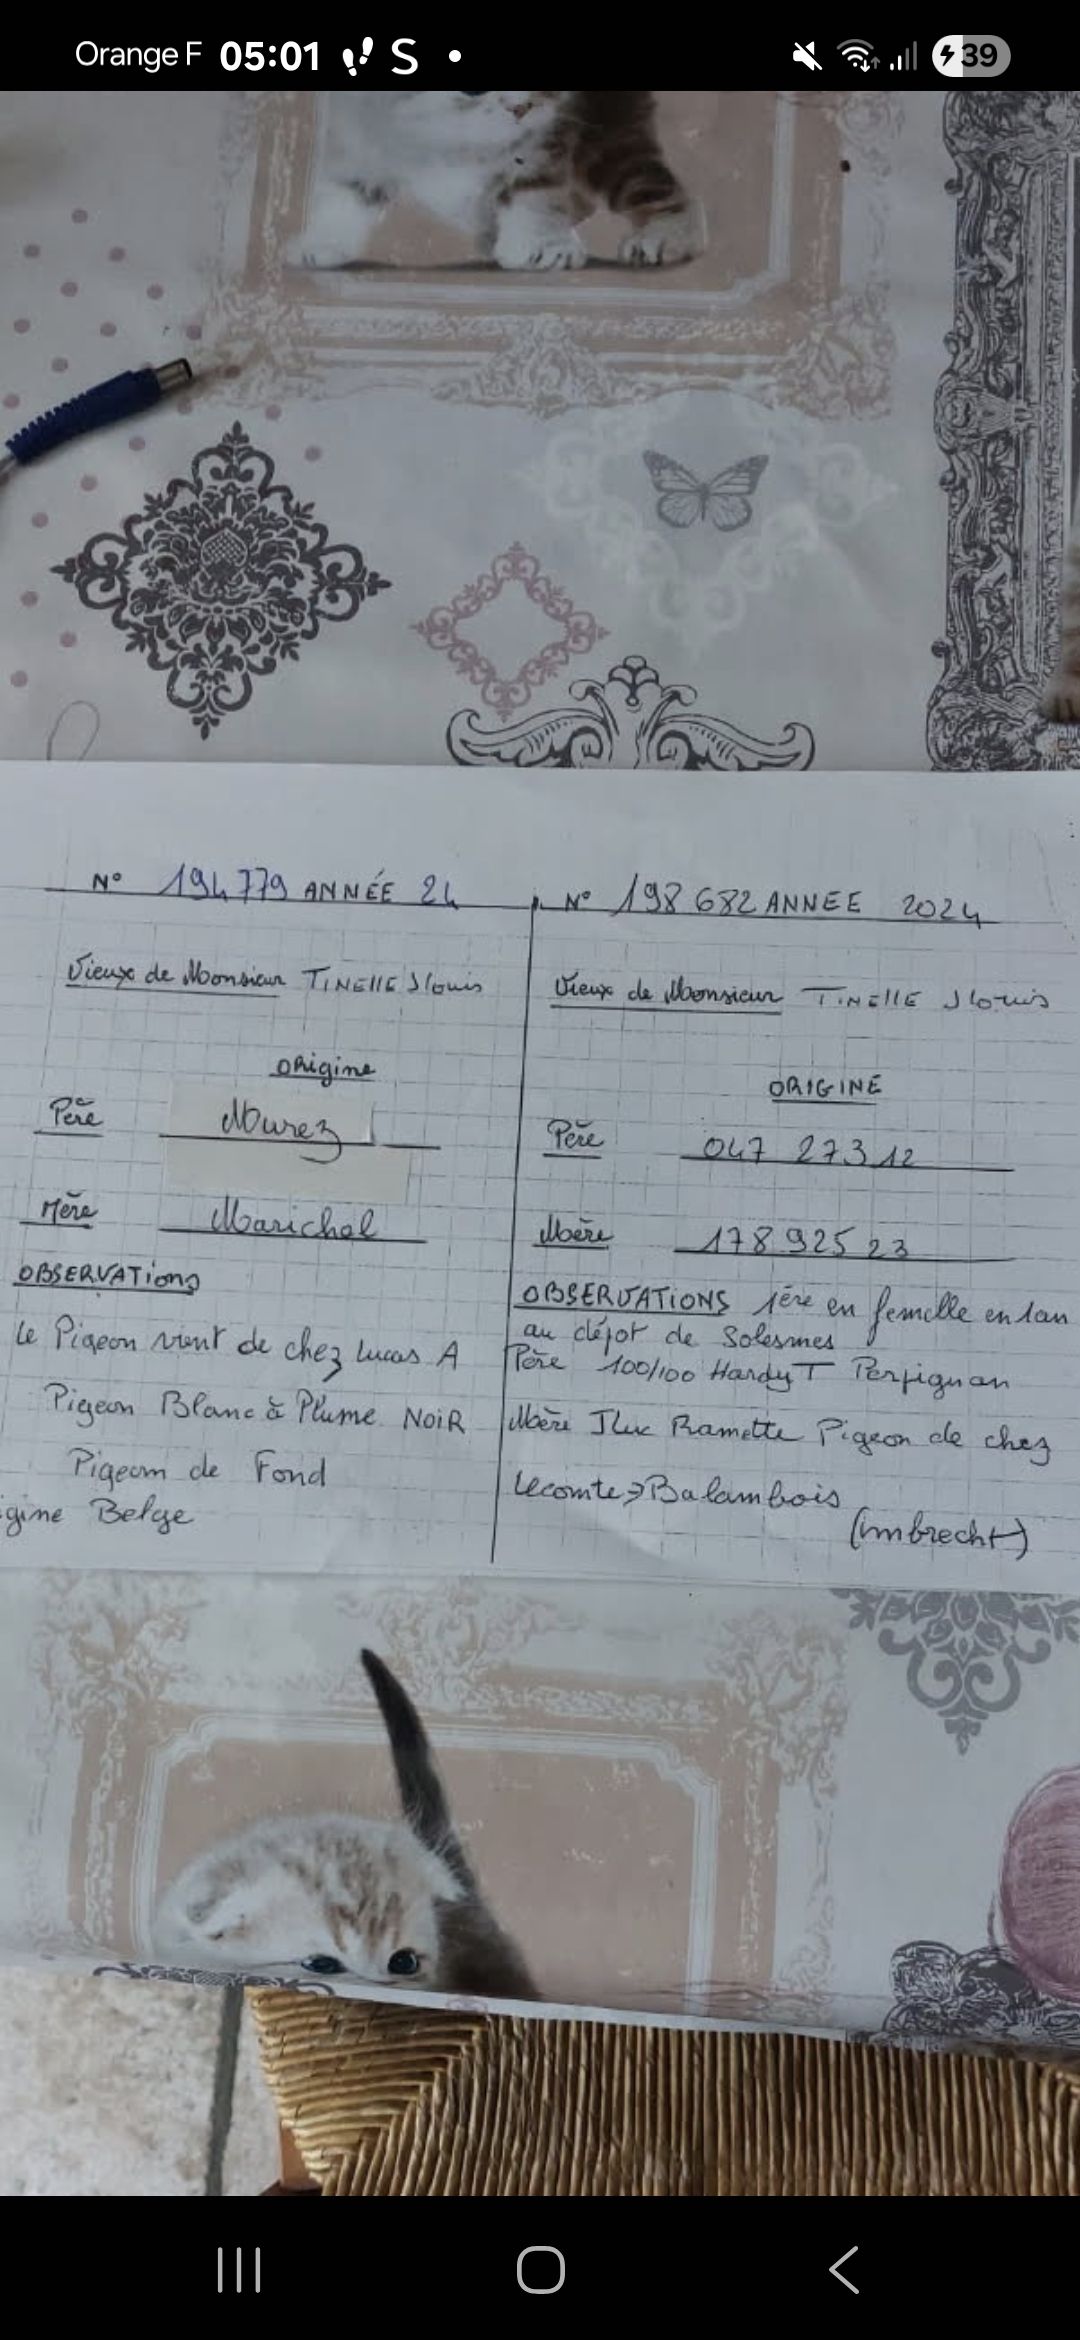 Orange F 05:01 S 39
N° 194779 ANNÉE 24
Vieux de Monsieur TINEllE Jlouis
origine
Père Murez
Mère Marichal
OBSERVATions
Le Pigeon vient de chez Lucas A
Pigeon Blanc à Plume NOIR
Pigeom de Fond
igine Belge
N° 198682 ANNEE 2024
Vieux de Monsieur TINEllE Jlouis
ORIGINE
Père 047 273 12
Mère 178 925 23
OBSERVATIONS 1ère en femelle en 1an
au dépot de Solesmes
Père 100/100 Hardy T Perpignan
Mère JLuc Ramette Pigeon de chez
Lecomte > Balambois
(imbrecht)